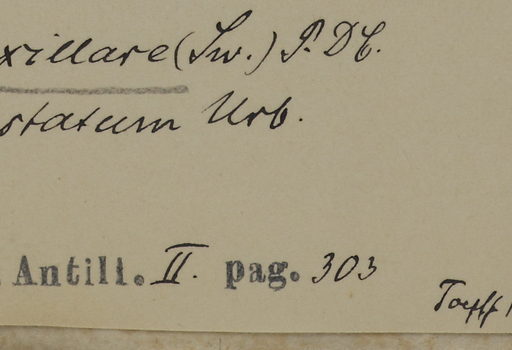 xillare (Sw.) P. DC.
statum Urb.
. Antill. II. pag. 303